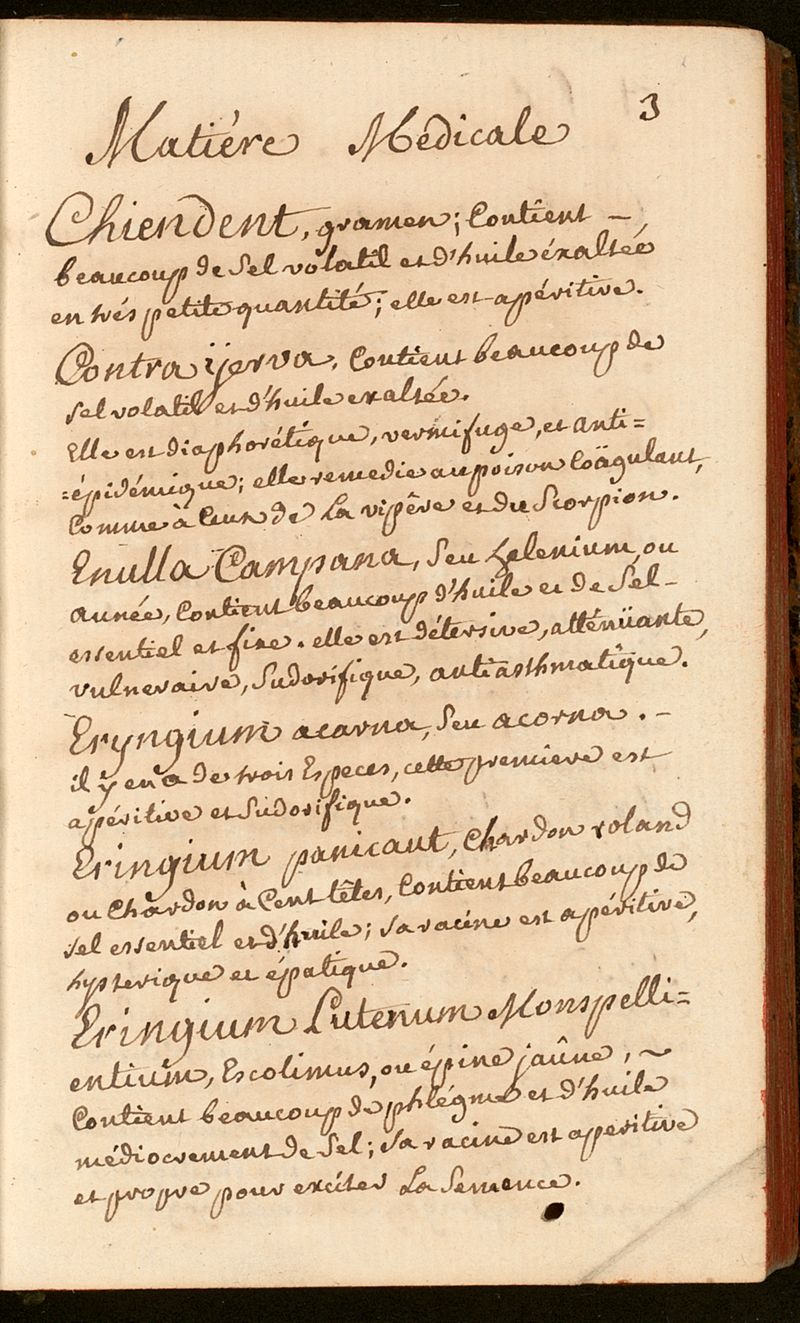 3
Matiére Médicale
Chiendent, gramen; Contient –
beaucoup de Sel volatil et d'huile éxaltée
en trés petite quantité; elle est apéritive.
Contra ijerva, Contient beaucoup de
sel volatil et d'huile exaltée.
Elle est diaphorétique, vermifuge, et anti=
=épidémique; elle remedie au poison Coägulant,
Comme à Ceux de La vipêre et du Scorpion.
Enulla Campana, Seu helenium, ou
aunée, Contient beaucoup d'huile et de Sel –
essentiel et fixe. elle est détersive, atténüante,
vulneraire, Sudorifique, antiasthmatique.
Eryngium acarna, Seu acorna. –
il y en a de trois Especes, cette premiere est
apéritive et Sudorifique.
Eringium panicaut, Chardon roland
ou Chardon à Cent têtes, Contient beaucoup de
sel essentiel et d'huile; sa racine est apéritive,
hysterique et épatique.
Eringium Lutenum Monspelli=
entium, Escolimus, ou épine jaûne, ~
Contient beaucoup de phlégme et d'huile
médiocrement de Sel; sa racine est aperitive
et propre pour exciter La Semence.